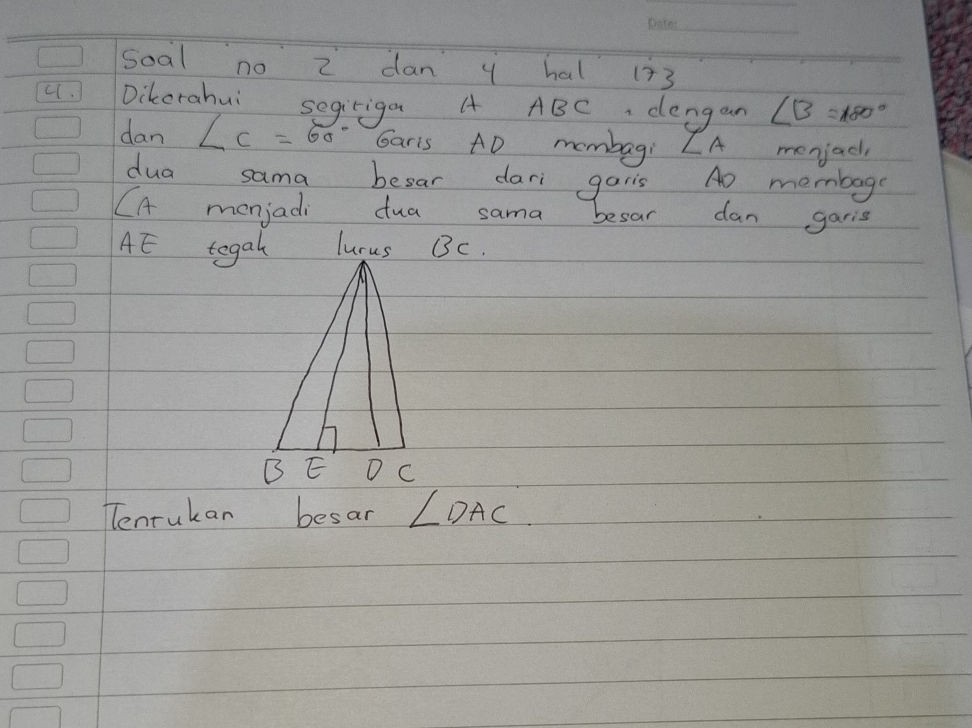 Date:
Soal no 2 dan 4 hal 173
4. Diketahui segitiga A ABC, dengan ∠B = 180°
dan ∠C = 60° Garis AD membagi ∠A menjadi
dua sama besar dari garis AD membagi
∠A menjadi dua sama besar dan garis
AE tegak lurus BC.
B E D C
Tentukan besar ∠DAC.